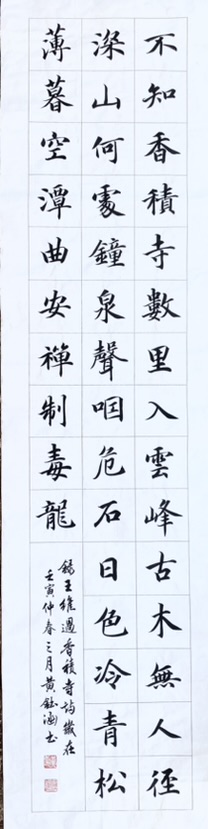 不知香積寺數里入雲峰古木無人徑
深山何處鐘泉聲咽危石日色冷青松
薄暮空潭曲安禪制毒龍
錄王維過香積寺詩歲在
壬寅仲春之月黃鈺涵书